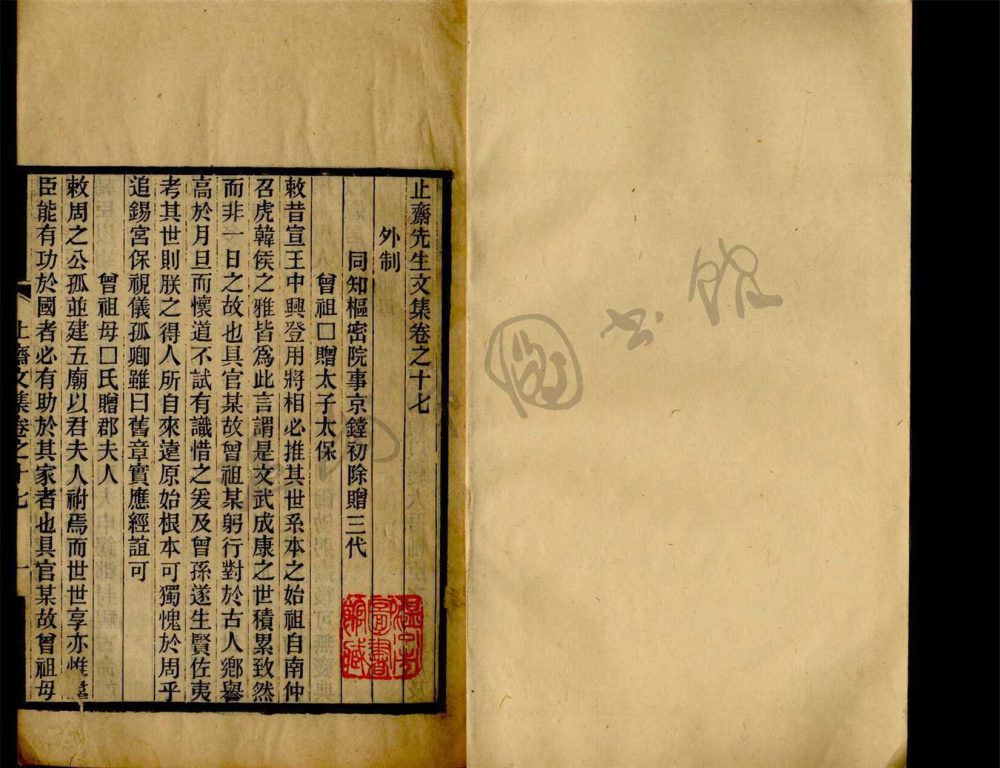 止齋先生文集卷之十七
外制
同知樞密院事京鏜初除贈三代
曾祖口贈太子太保
敕昔宣王中興登用將相必推其世系本之始祖自南仲
召虎韓侯之雅皆為此言謂是文武成康之世積累致然
而非一日之故也具官某故曾祖某躬行對於古人鄉譽
高於月旦而懷道不試有識惜之爰及曾孫遂生賢佐夷
考其世則朕之得人所自來遠原始根本可獨愧於周乎
追錫宮保視儀孤卿雖曰舊章實應經誼可
曾祖母口氏贈郡夫人
敕周之公孤並建五廟以君夫人祔焉而世世享亦惟
臣能有功於國者必有助於其家者也具官某故曾祖母
止齋文集卷之十七
一
溫州市
圖書
館藏
圖書館